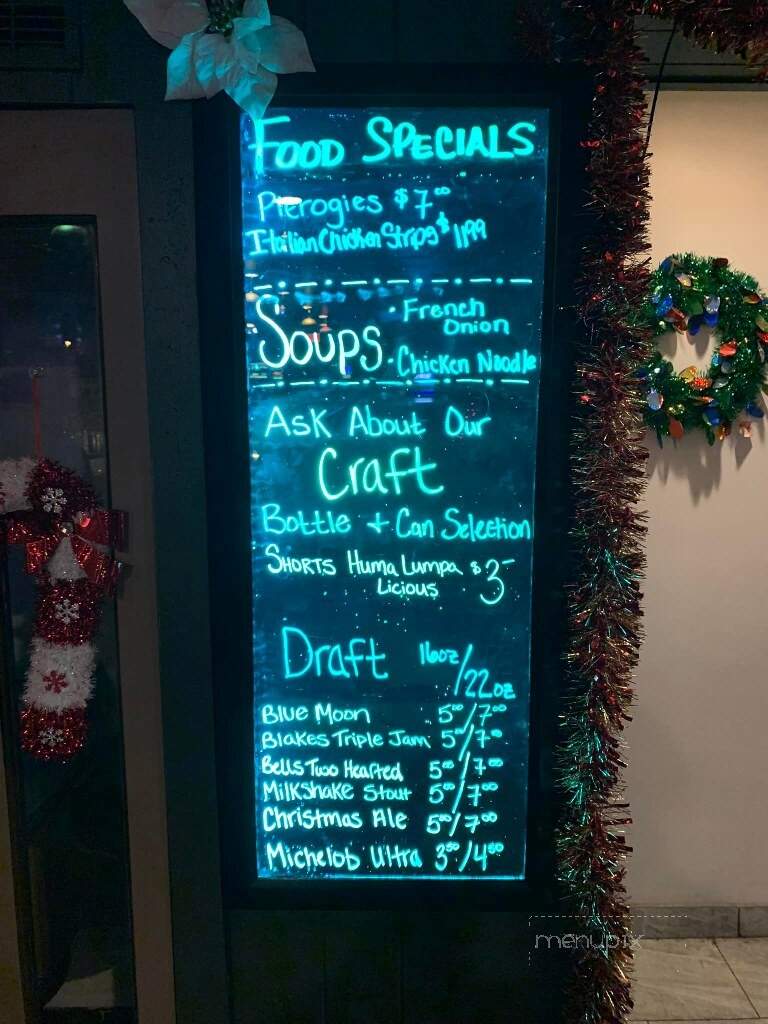 FOOD SPECIALS
Pierogies $7.00
Italian Chicken Strips $11.99
Soups
• French Onion
• Chicken Noodle
Ask About Our
Craft
Bottle + Can Selection
SHORTS Huma Lumpa $3-
Licious
Draft 16oz/22oz
Blue Moon 5.00/7.00
Blakes Triple Jam 5.00/7.00
Bells Two Hearted 5.00/7.00
Milkshake Stout 5.00/7.00
Christmas Ale 5.00/7.00
Michelob Ultra 3.50/4.50
menupix